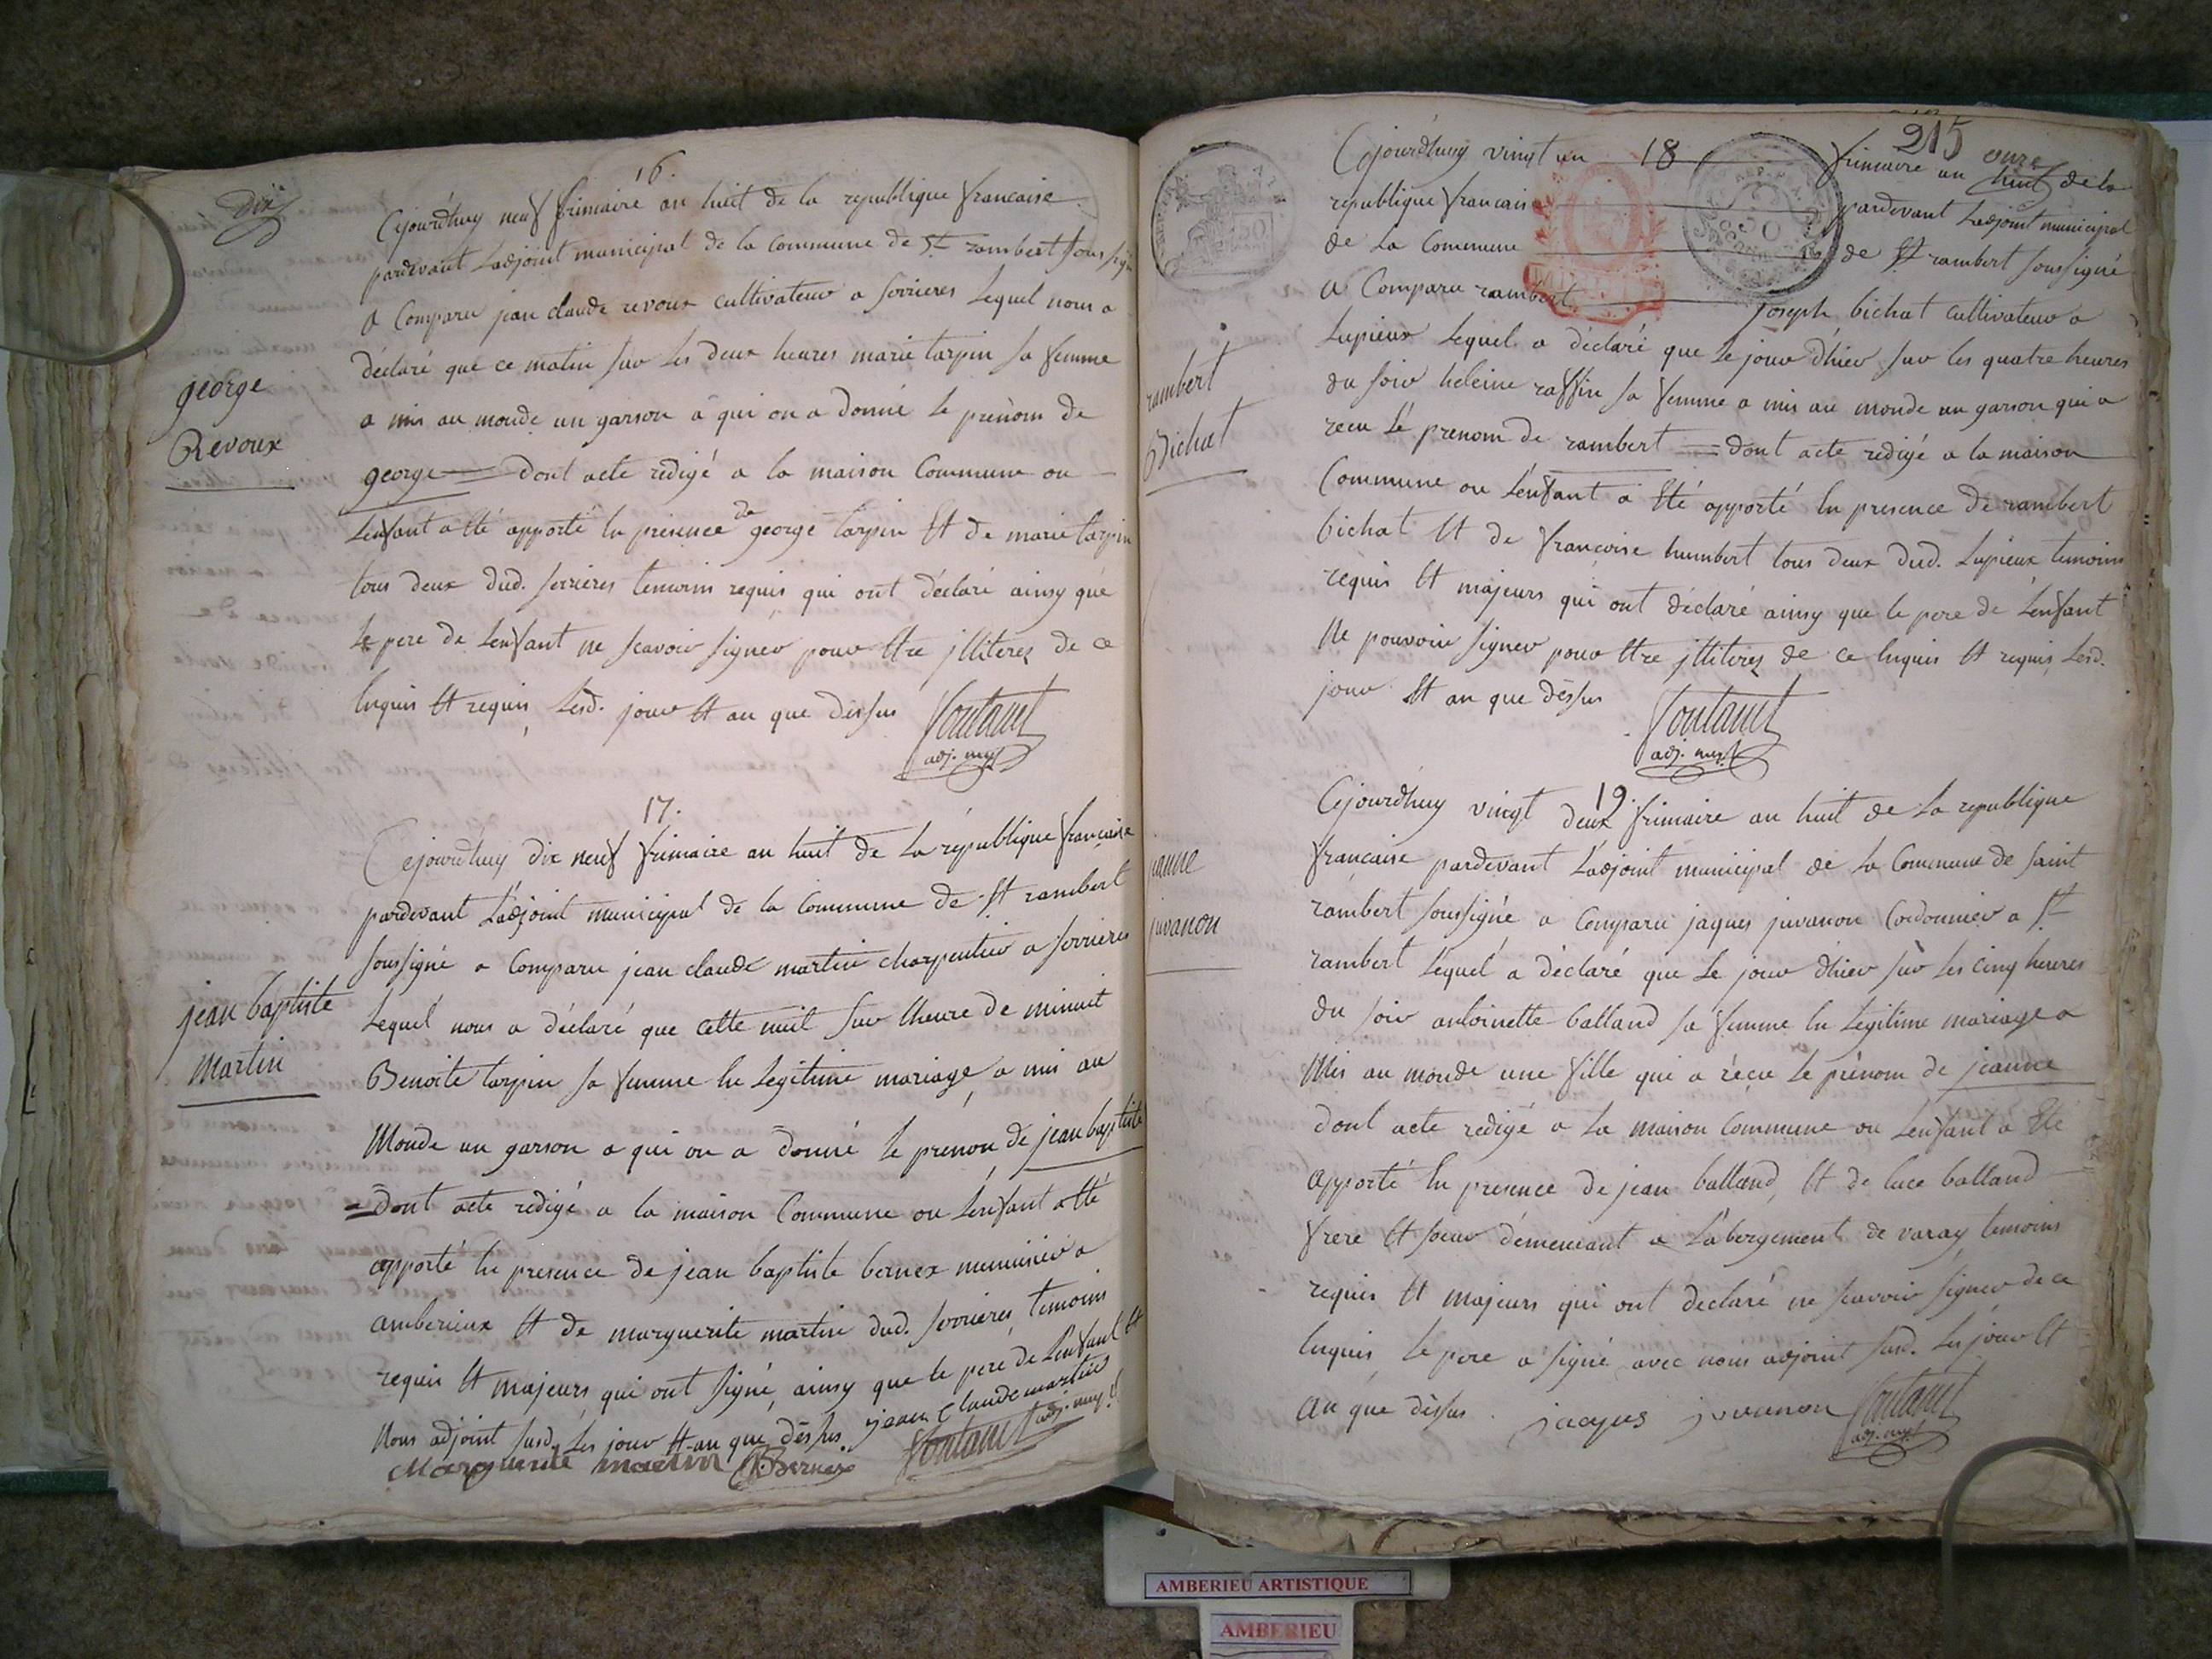 dix
16.
Cejourdhuy neuf frimaire an huit de la republique francaise
pardevant Ladjoint municipal de la Commune de St. rambert soussigné
a Comparu jean claude revoux cultivateur a serrieres Lequel nous a
déclaré que ce matin sur les deux heures marie tarpin sa femme
a mis au monde un garson a qui on a donné le prénom de
george
Revoux
george dont acte redigé a la maison Commune ou
Lenfant a été apporté En presence de george tarpin Et de marie tarpin
tous deux dud. serrieres temoins requis qui ont déclaré ainsy que
Le pere de Lenfant ne scavoir signer pour Etre jlliterez de ce
Enquis Et requis Lesd. jour Et an que dessus
adj. mpl
17.
Cejourdhuy dix neuf frimaire an huit de la republique francaise
pardevant Ladjoint municipal de la Commune de St rambert
soussigné a Comparu jean claude martin charpentier a serrieres
jean baptiste
martin
Lequel nous a déclaré que cette nuit sur Lheure de minuit
Benoite tarpin sa femme En Legitime mariage a mis au
Monde un garson a qui on a donné le prenon de jean baptiste
dont acte redigé a la maison Commune ou Lenfant a Eté
apporté En presence de jean baptiste bernex menuisier a
amberieux Et de marguerite martin dud. serrieres temoins
requis Et majeurs qui ont signé ainsy que le pere de Lenfant Et
Nous adjoint susd. Les jour Et an que dessus jean Claude martin
Marguerite martin Bernex adj. mpl
215
onze
18
Cejourdhuy vingt un frimaire an huit de la
republique francaise pardevant Ladjoint municipal
de La Commune de St rambert soussigné
a Comparu rambert joseph bichat cultivateur a
Lupieux Lequel a déclaré que le jour dhier sur les quatre heures
du soir heleine raffin sa femme a mis au monde un garson qui a
rambert
Bichat
recu Le prenom de rambert dont acte redigé a la maison
Commune ou Lenfant a Eté apporté En presence de rambert
bichat Et de francoise humbert tous deux dud. Lupieux temoins
requis Et majeurs qui ont déclaré ainsy que le pere de Lenfant
Ne pouvoir signer pour Etre jlliterez de ce Enquis Et requis Lesd.
jour Et an que dessus
adj. mpl
19.
Cejourdhuy vingt deux frimaire an huit de La republique
francaise pardevant Ladjoint municipal de La Commune de saint
jeanne
juvanon
rambert soussigné a Comparu jaques juvanon Cordonnier a St
rambert Lequel a déclaré que Le jour dhier sur Les cinq heures
du soir antoinette balland sa femme En Legitime mariage a
Mis au monde une fille qui a récu Le prénom de jeanne
dont acte redigé a La maison Commune ou Lenfant a Eté
apporté En presence de jean balland, Et de luce balland
frere Et soeur demeurant a Labergement de varay temoins
requis Et majeurs qui ont declaré ne scavoir signer de ce
Enquis, Le pere a signé avec nous adjoint susd. Les jour Et
an que dessus. jacques juvanon
adj. mpl
AMBERIEU ARTISTIQUE
AMBERIEU